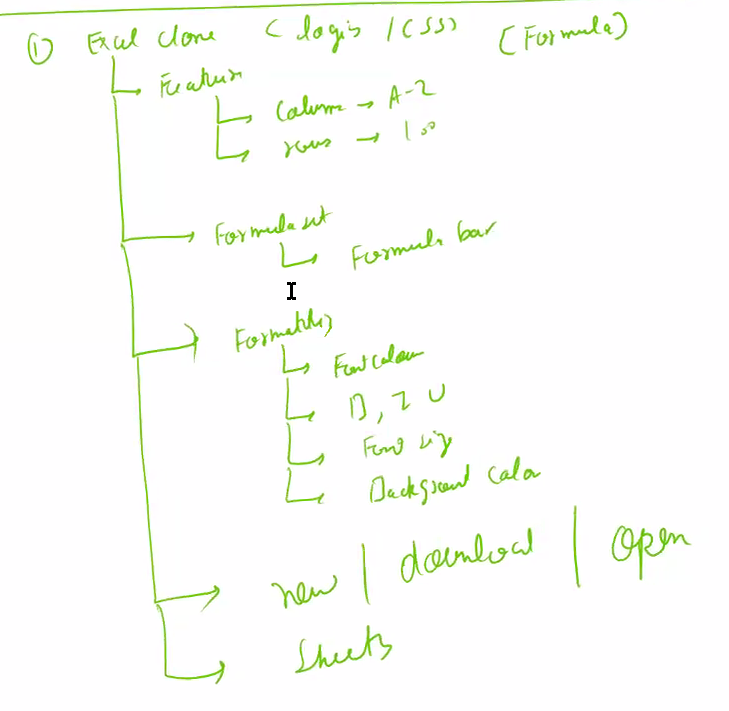 ① Excel clone (logic / CSS) (Formula)
Features
Column → A-Z
rows → 100
Formula set
Formula bar
Formatting
Font colour
B, I U
Font size
Background color
new | download | open
Sheets